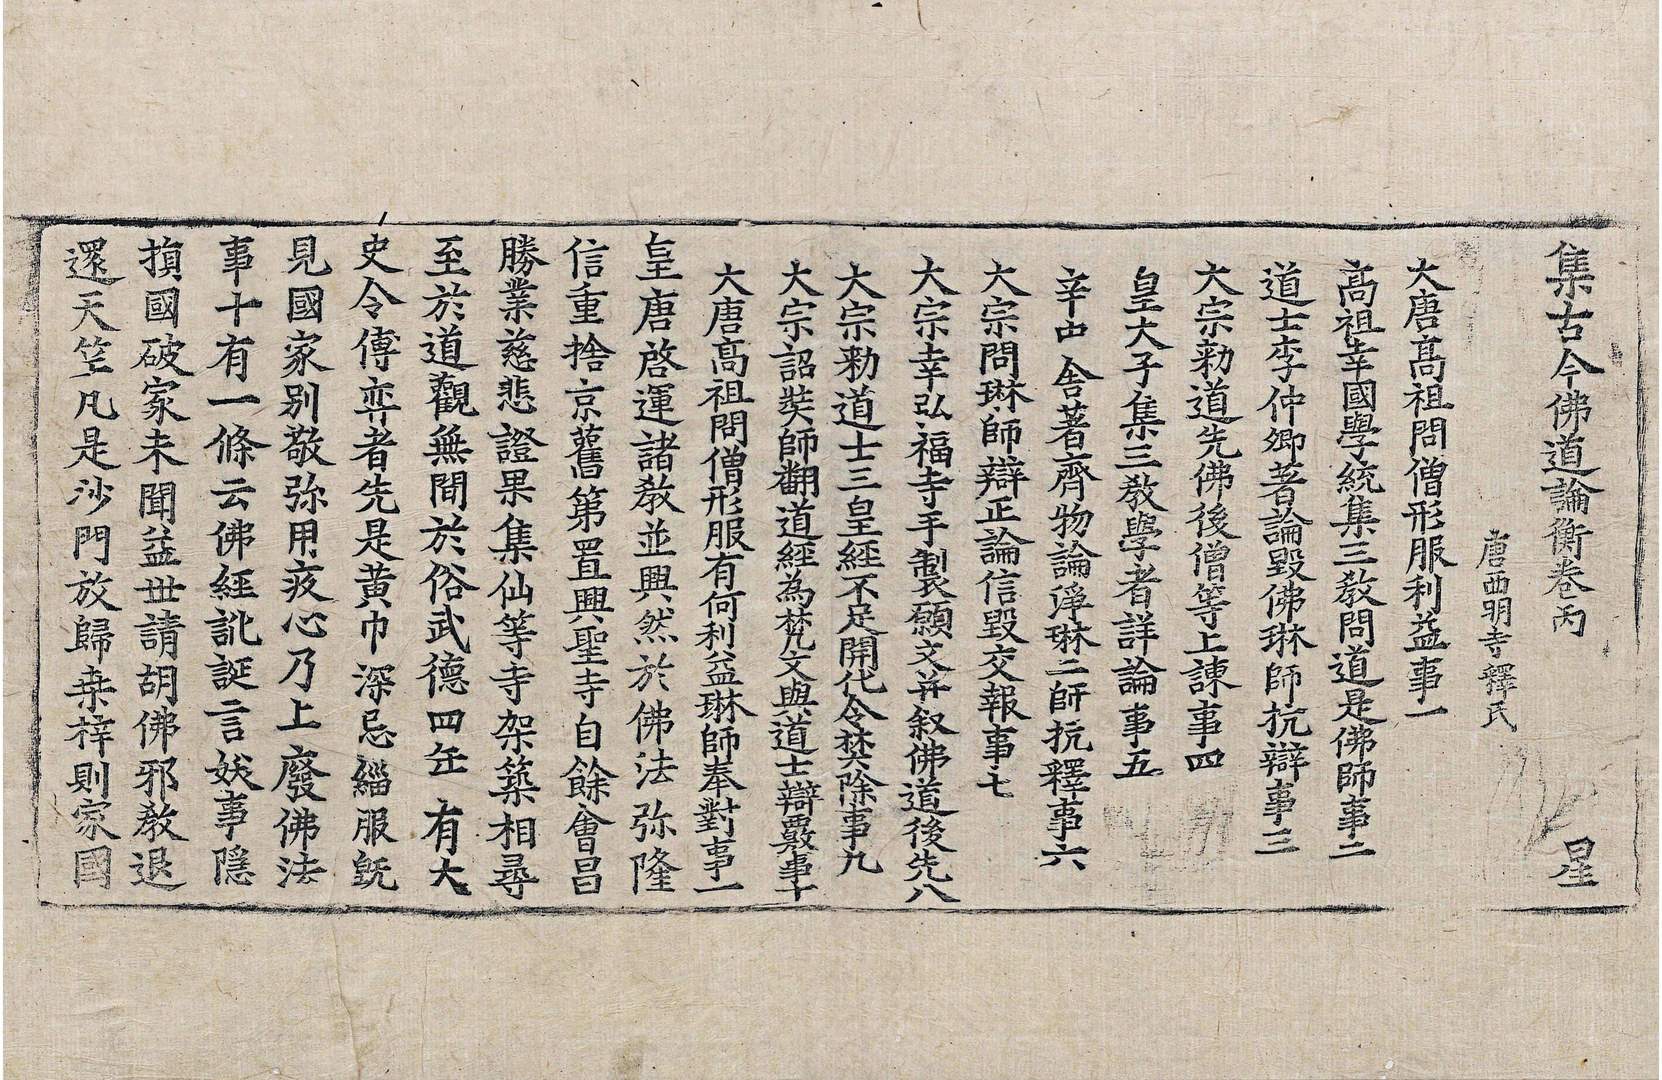 集古今佛道論衡卷丙 星
唐西明寺釋氏
大唐髙祖問僧形服利益事一
髙祖幸國學統集三教問道是佛師事二
道士李仲卿著論毀佛琳師抗辯事三
大宗勑道先佛後僧等上諫事四
皇大子集三教學者詳論事五
辛中舍著齊物論淨琳二師抗釋事六
大宗問琳師辯正論信毀交報事七
大宗幸弘福寺手製願文并叙佛道後先八
大宗勑道士三皇經不足開代令焚除事九
大宗詔奘師翻道經為梵文與道士辯覈事十
大唐髙祖問僧形服有何利益琳師奉對事一
皇唐啓運諸教並興然於佛法弥隆
信重捨京舊第置興聖寺自餘會昌
勝業慈悲證果集仙等寺架築相尋
至於道觀無間於俗武德四年有大
史令傅弈者先是黃巾深忌緇服旣
見國家別敬弥用疚心乃上廢佛法
事十有一條云佛經訛誕言妖事隱
損國破家未聞益世請胡佛邪教退
還天竺凡是沙門放歸桒梓則家國